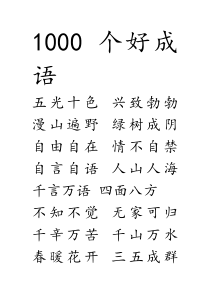 1000 个好成
语
五光十色 兴致勃勃
漫山遍野 绿树成阴
自由自在 情不自禁
自言自语 人山人海
千言万语 四面八方
不知不觉 无家可归
千辛万苦 千山万水
春暖花开 三五成群